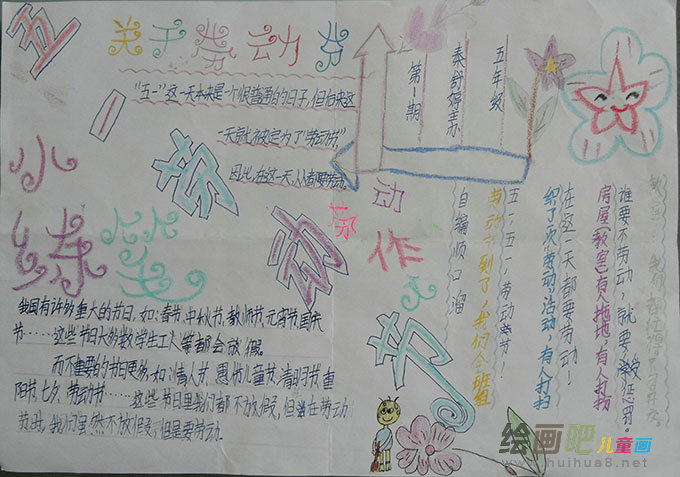 五一劳动节
关于劳动节
"五一"这一天本来是一个很普通的日子,但后来这
一天就被定为了"劳动节"
因此,在这一天,人人都要劳动。
五年级
秦舒婷主办
第1期
小练笔
我国有许多重大的节日,如:春节、中秋节、教师节、元宵节、国庆
节……这些节日大多数学生工人等都会放假。
而不重要的节日更多,如:情人节、愚人节、儿童节、清明节、重
阳节、七夕、劳动节……这些节日里我们都不放假,但是在劳动
节时,我们虽然不放假,但是要劳动。
动作
自编顺口溜
五一五一,劳动节!
劳动节到了,我们全班组
织了次劳动活动,有人打扫
在这一天都要劳动!
房屋(教室)有人拖地,有人打扮
谁要不劳动,就要受惩罚。
绘画吧儿童画
www.huihua8.net